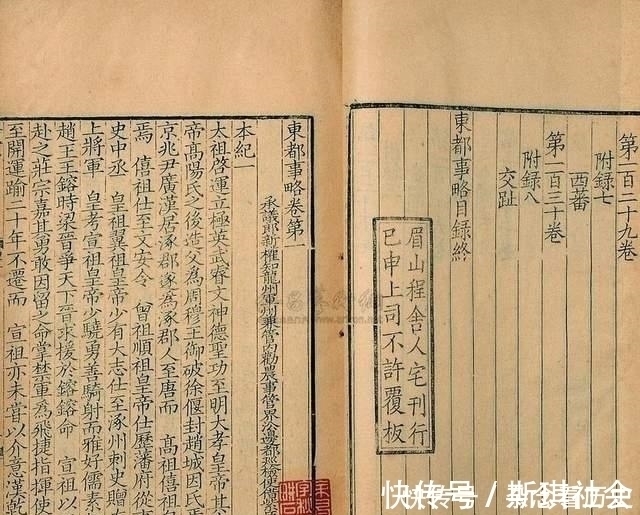 第一百二十九卷
附録七
西蕃
第一百三十卷
附録八
交趾
東都事略目録終
眉山程舍人宅刊行
已申上司不許覆板
東都事略卷第一
承議郎新權知龍州軍州兼管內勸農事管界沿邊都巡檢使借紫
本紀一
太祖啓運立極英武睿文神德聖功至明大孝皇帝
帝高陽氏之後造父為周穆王御破徐偃封趙城因氏焉
京兆尹廣漢居涿郡遂為涿郡人至唐而 高祖僖祖
焉 僖祖仕至文安令 曾祖順祖皇帝仕歷藩府從事
史中丞 皇祖翼祖皇帝少有大志仕至涿州刺史贈
上將軍 皇考宣祖皇帝少驍勇善騎射而雅好儒素
趙王王鎔時梁晉爭天下晉求援於鎔鎔命 宣祖以
赴之莊宗嘉其勇敢因留之命掌禁軍為飛捷指揮使
至開運踰二十年不遷而 宣祖亦未嘗以介意漢乾
快传号／斯琪社会